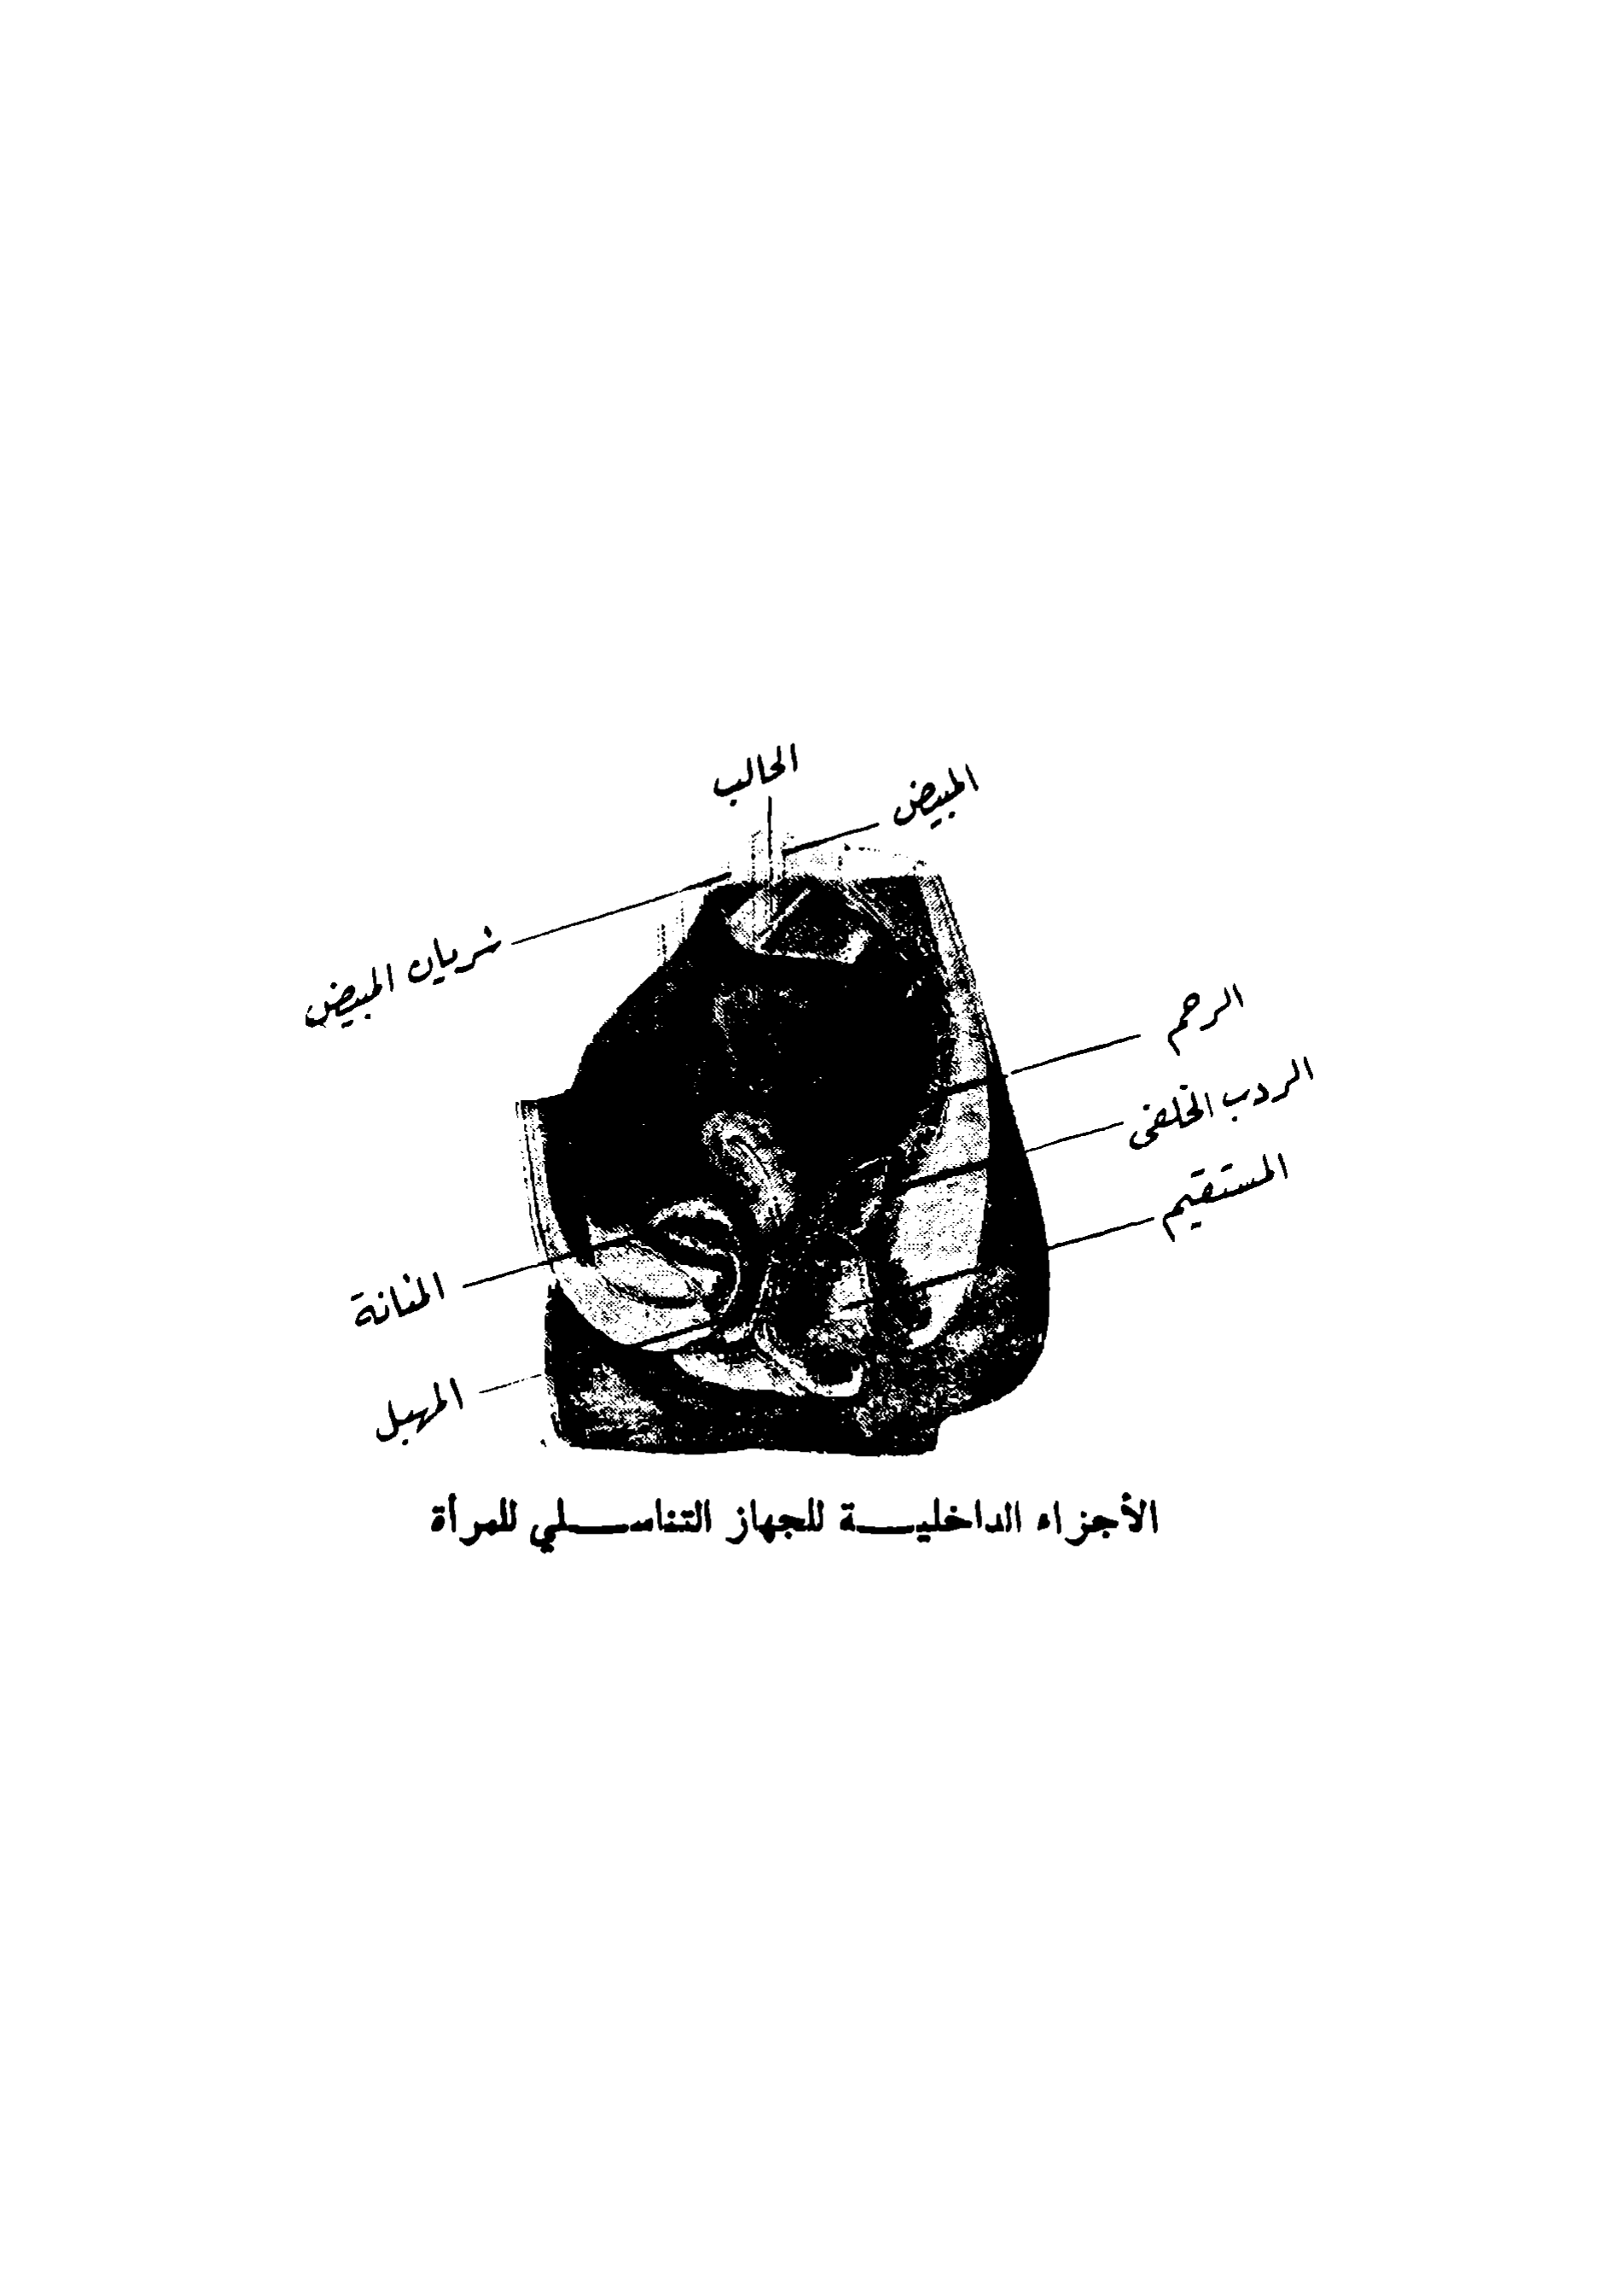 الحالب
المبيض
شريان المبيض
الرحم
الردب الخلفي
المستقيم
المثانة
المهبل
الأجزاء الداخلية للجهاز التناسلي للمرأة